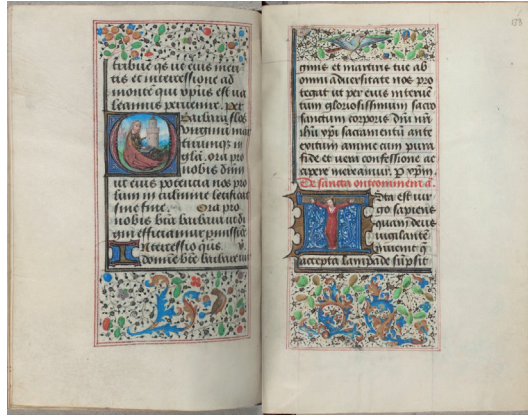 tribue qs ut eius meri
tis et intercessione ad
montē qui xp̄us est ua
leamus peruenire. Per
Barbara flos
uirginū mar
tirumqȝ in
glā. ora pro
nobis dūm
ut eius potencia nos pro
bum in culmine letificat
sine fine. Ora pro
nobis btā barbara ut di
gni efficiamur
Ntercessio qūs v̄.
domīe btē barbare uir
153
ginis et martiris tue ab
omni aduersitate nos pro
tegat ut per eius interuē
tum gloriosissimum sacro
sanctum corporis dūi nrī
ihū xp̄i sacramentū ante
exitum anime cum pura
fide et uera confessione ac
cipere mereamur. P xp̄m.
De sancta ontcommena.
Ista est uir
go sapiens
quam dn̄s
uigilante
inuenit q̄
accepta lampade sūpsit